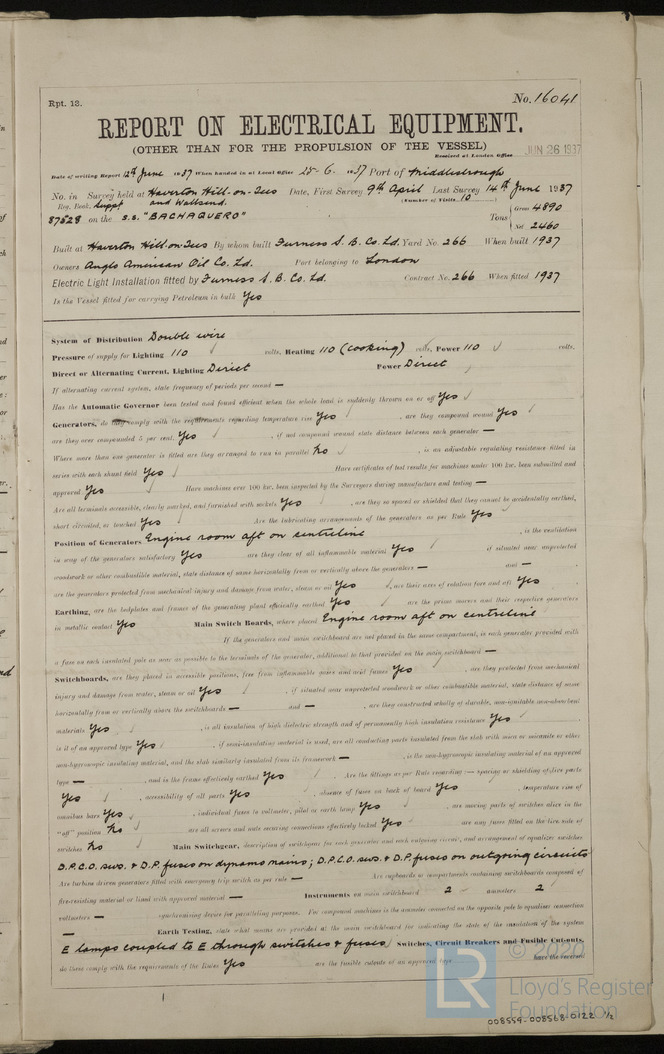 Rpt. 13.
No. 16041
REPORT ON ELECTRICAL EQUIPMENT.
(OTHER THAN FOR THE PROPULSION OF THE VESSEL)
JUN 26 1937
Received at London Office
Date of writing Report 12th June 1937 When handed in at Local Office 25-6-1937 Port of Middlesbrough
No. in Survey held at Haverton Hill-on-Tees Date, First Survey 9th April Last Survey 14th June 1937
Reg. Book. Suppt and Wallsend. (Number of Visits 10)
87528 on the S.S. "BACHAQUERO" Tons { Gross 4890
Net 2460
Built at Haverton Hill-on-Tees By whom built Furness S. B. Co. Ld. Yard No. 266 When built 1937
Owners Anglo American Oil Co. Ld. Port belonging to London
Electric Light Installation fitted by Furness S. B. Co. Ld. Contract No. 266 When fitted 1937
Is the Vessel fitted for carrying Petroleum in bulk Yes
System of Distribution Double wire
Pressure of supply for Lighting 110 volts, Heating 110 (cooking) volts, Power 110 volts.
Direct or Alternating Current, Lighting Direct Power Direct
If alternating current system, state frequency of periods per second —
Has the Automatic Governor been tested and found efficient when the whole load is suddenly thrown on or off Yes
Generators, do they comply with the requirements regarding temperature rise Yes, are they compound wound Yes
are they over compounded 5 per cent. Yes, if not compound wound state distance between each generator —
Where more than one generator is fitted are they arranged to run in parallel No, is an adjustable regulating resistance fitted in
series with each shunt field Yes Have certificates of test results for machines under 100 kw. been submitted and
approved Yes Have machines over 100 kw. been inspected by the Surveyors during manufacture and testing —
Are all terminals accessible, clearly marked, and furnished with sockets Yes, are they so spaced or shielded that they cannot be accidentally earthed,
short circuited, or touched Yes Are the lubricating arrangements of the generators as per Rule Yes
Position of Generators Engine room aft on centreline, is the ventilation
in way of the generators satisfactory Yes are they clear of all inflammable material Yes if situated near unprotected
woodwork or other combustible material, state distance of same horizontally from or vertically above the generators — and —
are the generators protected from mechanical injury and damage from water, steam or oil Yes, are their axes of rotation fore and aft Yes
Earthing, are the bedplates and frames of the generating plant efficiently earthed Yes are the prime movers and their respective generators
in metallic contact Yes Main Switch Boards, where placed Engine room aft on centreline
If the generators and main switchboard are not placed in the same compartment, is each generator provided with
a fuse on each insulated pole as near as possible to the terminals of the generator, additional to that provided on the main switchboard —
Switchboards, are they placed in accessible positions, free from inflammable gases and acid fumes Yes, are they protected from mechanical
injury and damage from water, steam or oil Yes, if situated near unprotected woodwork or other combustible material, state distance of same
horizontally from or vertically above the switchboards — and —, are they constructed wholly of durable, non-ignitable non-absorbent
materials Yes, is all insulation of high dielectric strength and of permanently high insulation resistance Yes
is it of an approved type Yes, if semi-insulating material is used, are all conducting parts insulated from the slab with mica or micanite or other
non-hygroscopic insulating material, and the slab similarly insulated from its framework —, is the non-hygroscopic insulating material of an approved
type —, and is the frame effectively earthed Yes. Are the fittings as per Rule regarding:— spacing or shielding of live parts
Yes, accessibility of all parts Yes, absence of fuses on back of board Yes, temperature rise of
omnibus bars Yes, individual fuses to voltmeter, pilot or earth lamp Yes, are moving parts of switches alive in the
"off" position No are all screws and nuts securing connections effectively locked Yes are any fuses fitted on the live side of
switches No Main Switchgear, description of switchgear for each generator and each outgoing circuit, and arrangement of equalizer switches
D.P.C.O. sws. & D.P. fuses on dynamo mains; D.P.C.O. sws. & D.P. fuses on outgoing circuits
Are turbine driven generators fitted with emergency trip switch as per rule — Are cupboards or compartments containing switchboards composed of
fire-resisting material or lined with approved material — Instruments on main switchboard 2 ammeters 2
voltmeters — synchronising device for paralleling purposes. For compound machines is the ammeter connected on the opposite pole to equaliser connection
— Earth Testing, state what means are provided at the main switchboard for indicating the state of the insulation of the system
E lamps coupled to E through switches & fuses Switches, Circuit Breakers and Fusible Cut-outs,
do these comply with the requirements of the Rules Yes are the fusible cutouts of an approved type have the reversed
© 2020
LR
Lloyd's Register
Foundation
008559-008568-0122 1/2